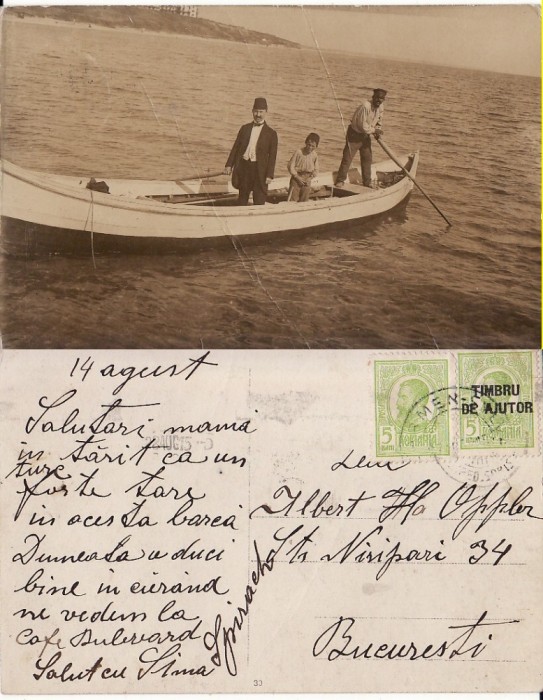 14 agust
Salutari mamă
in tărit ca un
turc
foste tare
in acesta barcă
Dumneata o duci
bine in curănd
ne vedem la
Cafe Bulevard
Salut cu Stma
Spirache
5 BANI ROMANIA
5 BANI ROMANIA
TIMBRU
DE AJUTOR
AUG15
Albert Oppler
Str Nisipari 34
Bucuresti
30